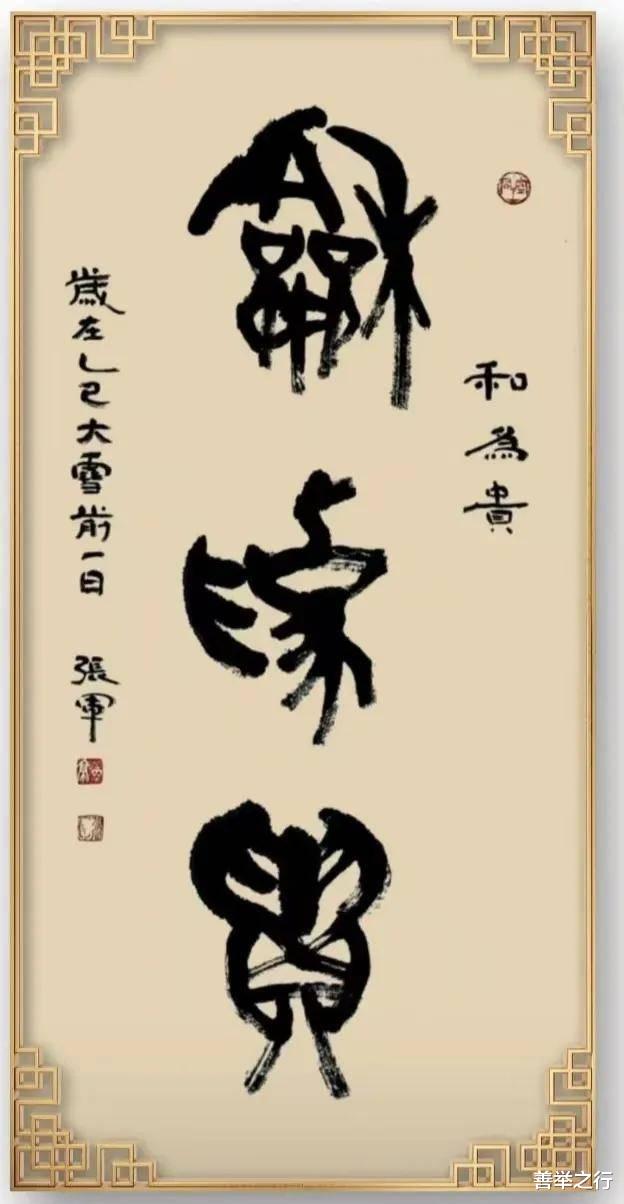 和為貴
龢為貴
歲在乙巳大雪前一日 張軍
善举之行